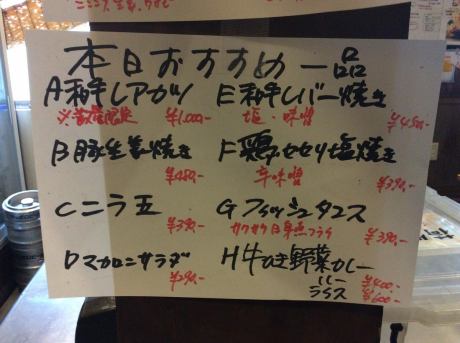 本日おすすめ一品
A 和牛レアカツ
※数量限定 ¥1,000-
E 和牛レバー焼き
塩・味噌 ¥450-
B 豚生姜焼き
¥480-
F 鶏セセリ塩焼き
辛味噌 ¥390,-
C ニラ玉
¥390,-
G フィッシュタコス
サクサク白身魚フライ ¥390-
D マカロニサラダ
¥290,-
H 牛ひき野菜カレー
¥400-
ライス ¥600-